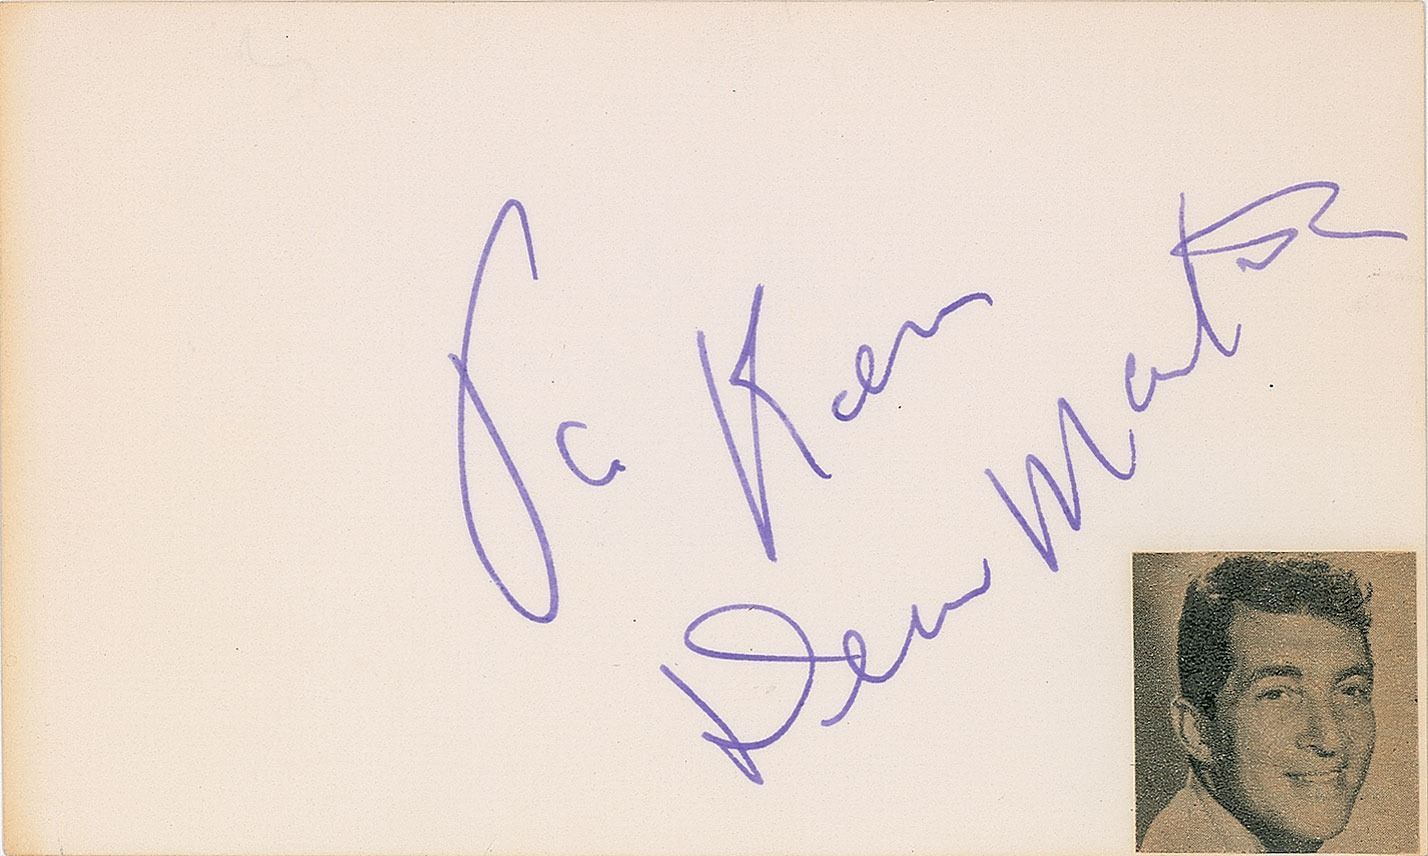 To Ken
Dean Martin